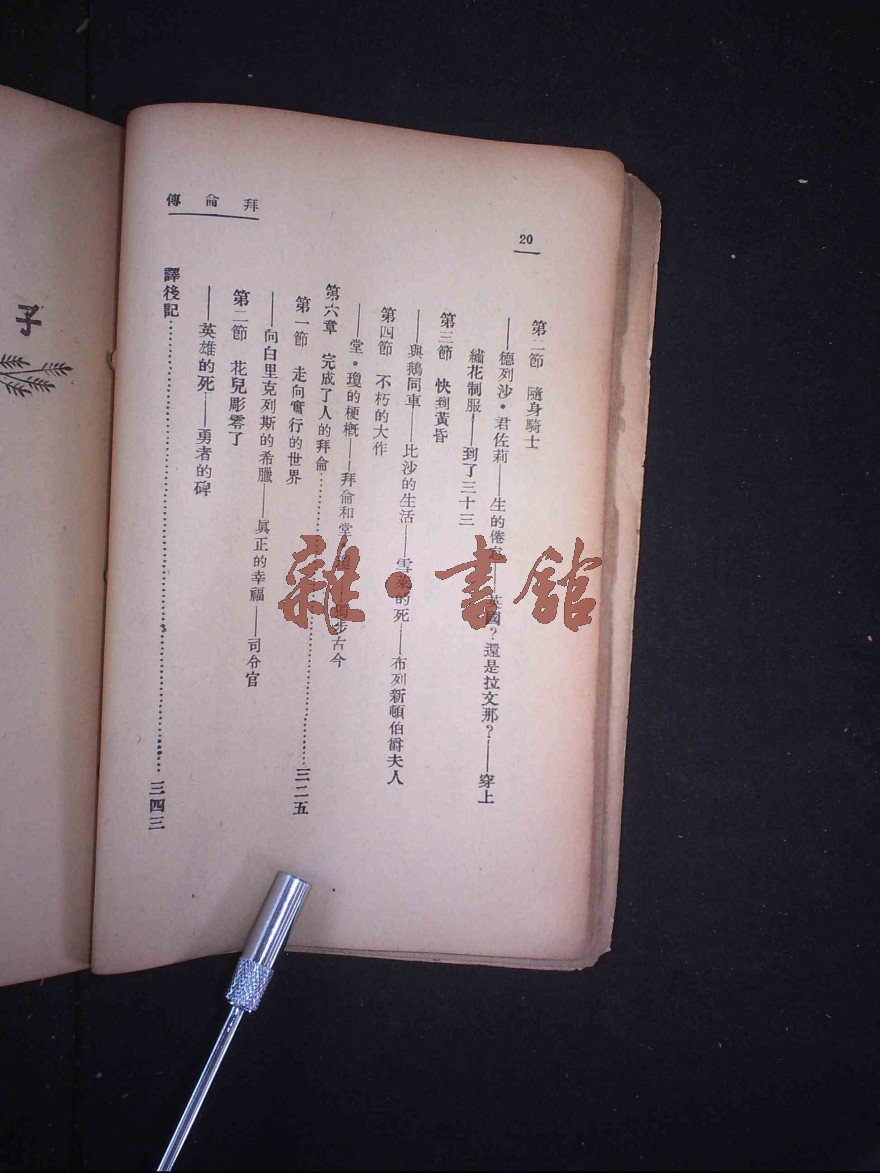 拜侖傳
20
第二節 隨身騎士
——德列沙·君佐莉——生的倦怠——英國?還是拉文那?——穿上
繡花制服——到了三十三
第三節 快到黃昏
——與鵝同車——比沙的生活——雪萊的死——布列新頓伯爵夫人
第四節 不朽的大作
——堂·瓊的梗概——拜侖和堂·瓊——步古今
第六章 完成了人的拜侖…………三二五
第一節 走向奮行的世界
——向白里克列斯的希臘——眞正的幸福——司令官
第二節 花兒彫零了
——英雄的死——勇者的碑
譯後記…………三四三
子
雜·書館